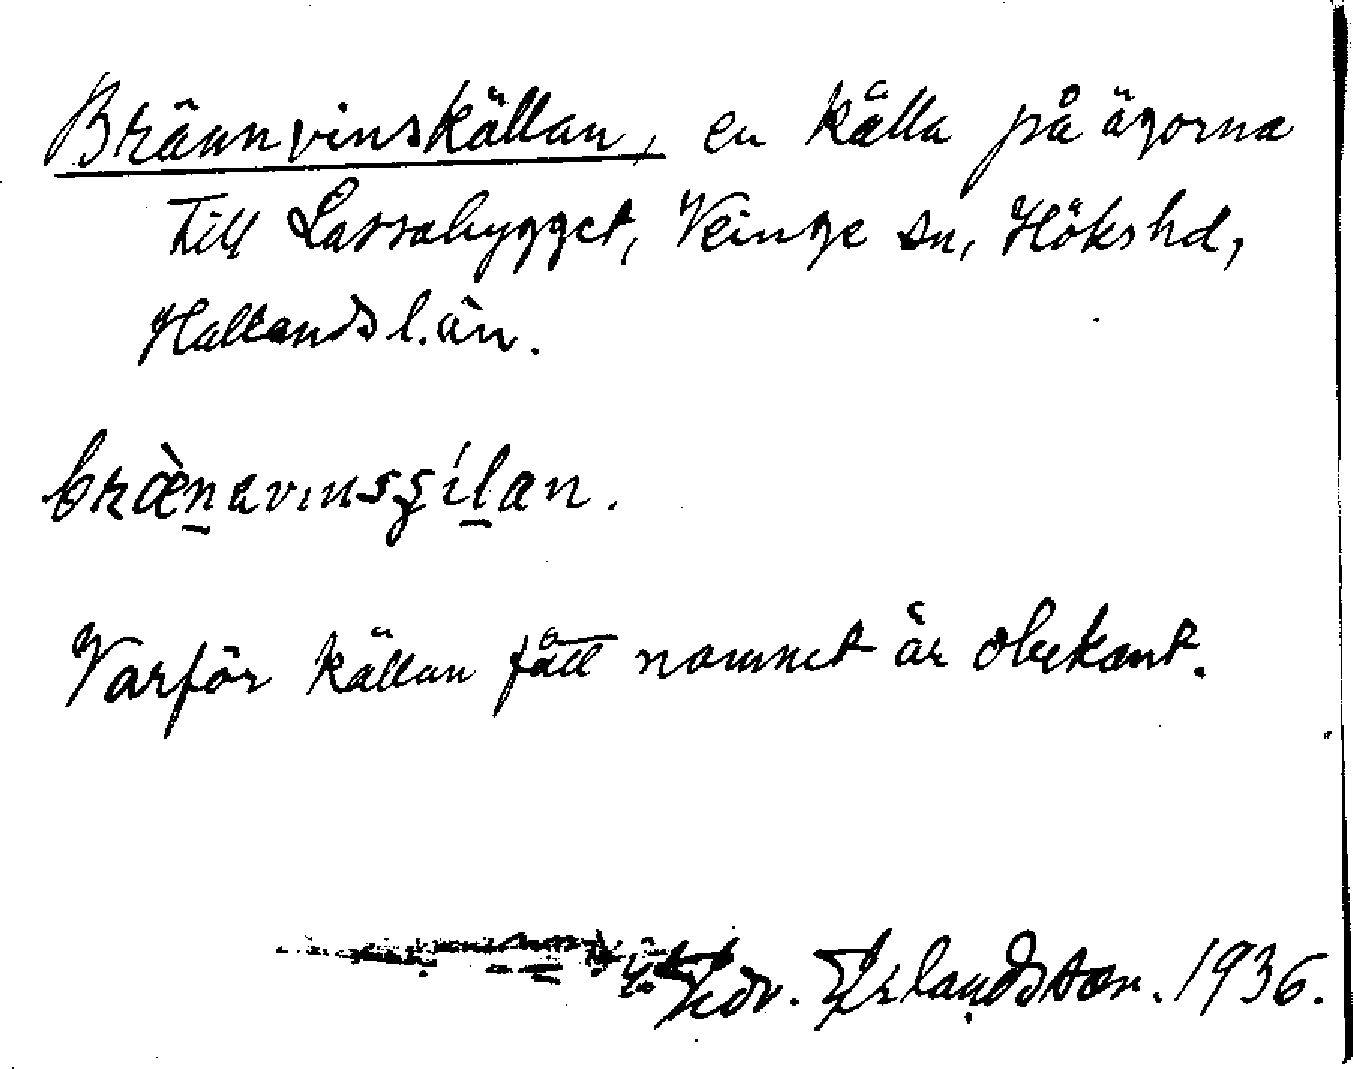 Brännvinskällan, en källa på ägorna
till Lassabygget, Veinge sn, Höks hd,
Hallands län.
bræ̀n̠avinsʂíl̠an.
Varför källan fått namnet är obekant.
Erlandsson. 1936.